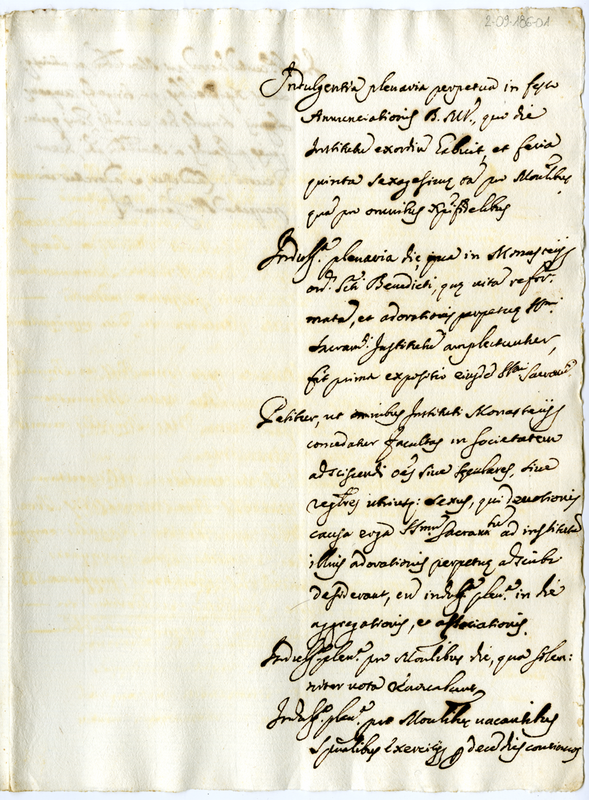 2-09-186-01
Indulgentia plenaria perpetua in festo
Annunciationis B. M. V., quo die
Institutu exordiu habuit, et feria
quinta Sexagesimę tã pro Monlibus,
quã pro omnibus Xpi fidelibus
Indulg.ª plenaria die, qua in Monasterijs
ord: Scti Benedicti, quę vitã refor:
matã, et adorationis perpetuę SSmi
Sacramti Institutũ amplectuntur,
fit prima expositio eiusdẽ SSmi Sacramti.
Petitur, ut omnibus Instituti Monasterijs
concedatur facultas in societatem
adsciscendi oẽs sive sęculares, sive
reglres utriusq: sexus, qui devotionis
causa erga SSmũ Sacramtũ ad institutũ
illius adorationis perpetuę adscribi
desiderant, cũ indulg.ª plen.ª in die
aggregationis, et associationis.
Indulg.ª plen.ª pro Monlibus die, qua solem:
niter vota
Indulg.ª plen.ª pro Monlibus vacantibus
Spiritualibus Exercitijs p decẽ dies continuos